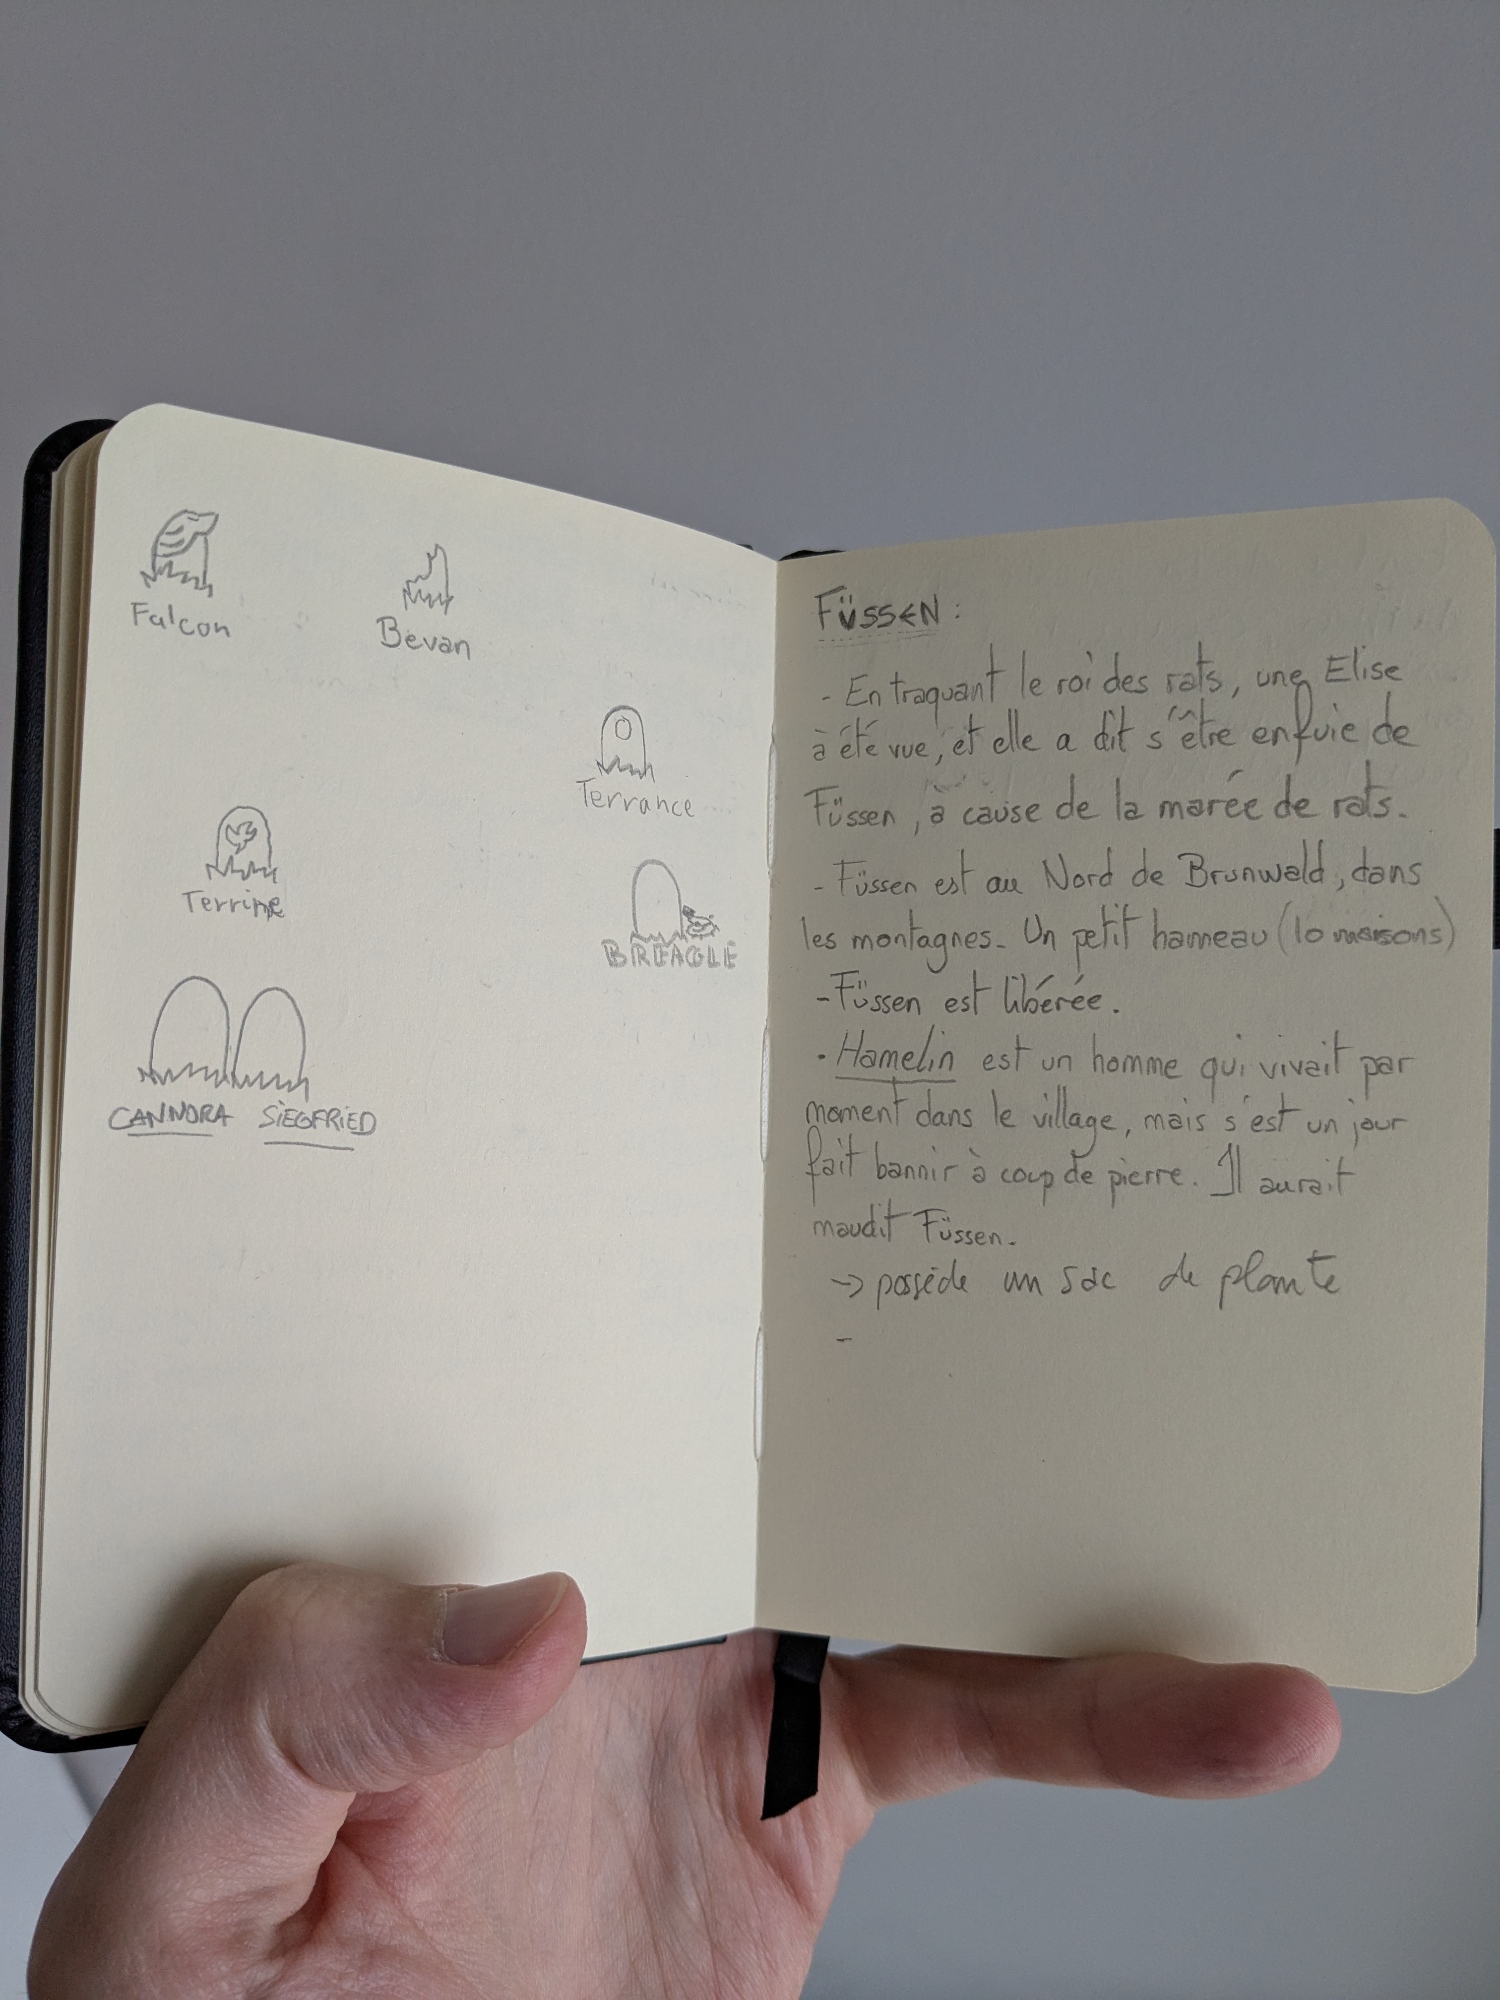 Falcon
Bevan
Terrance
Terrine
BREAGLE
CANNORA SIEGFRIED
FÜSSEN :
- En traquant le roi des rats, une Elise
à été vue, et elle a dit s'être enfuie de
Füssen, à cause de la marée de rats.
- Füssen est au Nord de Brunwald, dans
les montagnes. Un petit hameau (10 maisons)
- Füssen est libérée.
· Hamelin est un homme qui vivait par
moment dans le village, mais s'est un jour
fait bannir à coup de pierre. Il aurait
maudit Füssen.
-> possède un sac de plante
-